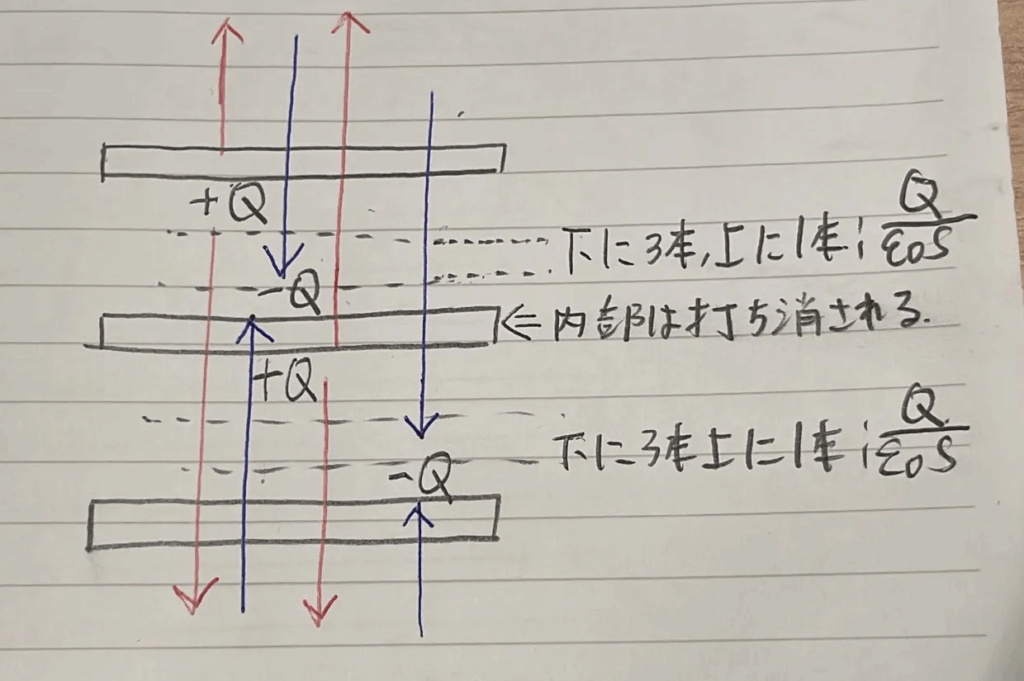 +Q
下に3本,上に1本; Q/ε0S
-Q
⇐内部は打ち消される.
+Q
下に3本上に1本; Q/ε0S
-Q